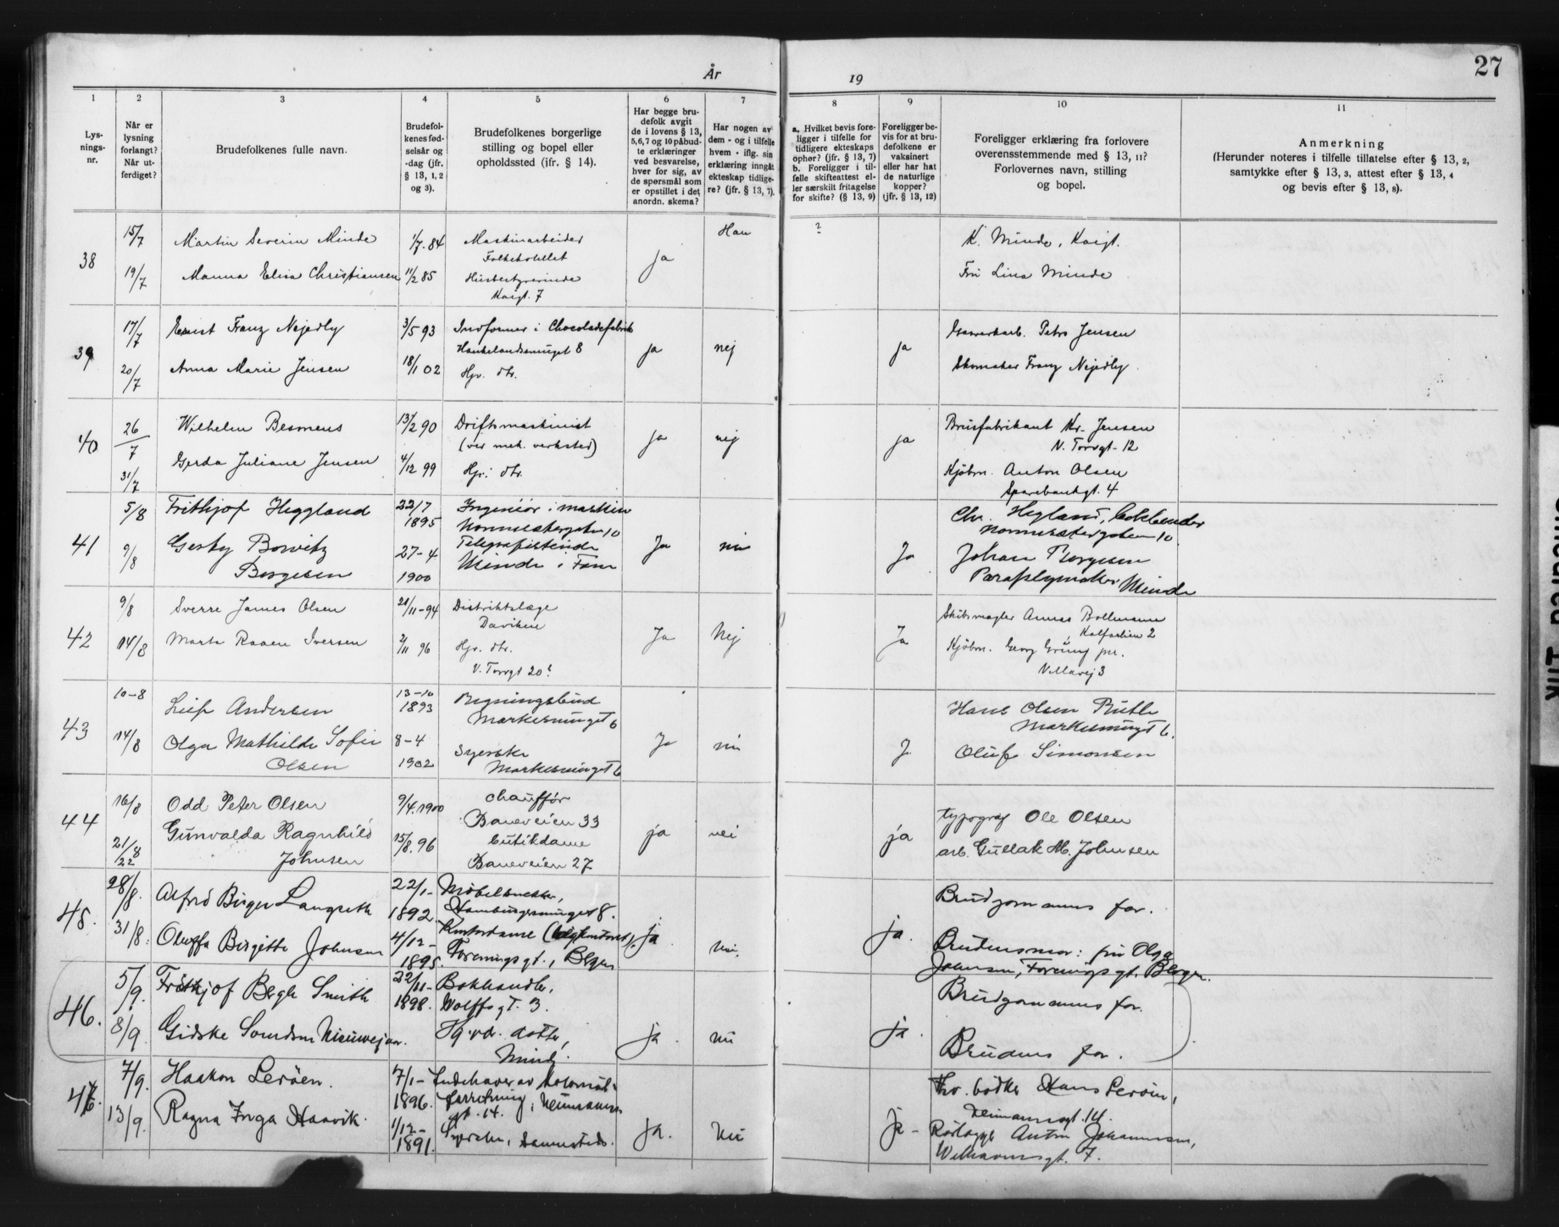 År 19
27
1 2 3 4 5 6 7 8 9 10 11
Lysningsnr.
Når er lysning forlangt? Når utferdiget?
Brudefolkenes fulle navn.
Brudefolkenes fødselsår og -dag (jfr. § 13, 1, 2 og 3).
Brudefolkenes borgerlige stilling og bopel eller opholdssted (jfr. § 14).
Har begge brudefolk avgit de i lovens § 13, 5, 6, 7 og 10 påbudte erklæringer ved besvarelse, hver for sig, av de spørsmål som er opstillet i det anordn. skema?
Har nogen av dem - og i tilfelle hvem - iflg. sin erklæring inngåt ekteskap tidligere? (jfr. § 13, 7).
a. Hvilket bevis foreligger i tilfelle for tidligere ekteskaps ophør? (jfr. § 13, 7)
b. Foreligger i tilfelle skifteattest eller særskilt fritagelse for skifte? (§ 13, 9)
Foreligger bevis for at brudefolkene er vaksinert eller har hat de naturlige kopper? (jfr. § 13, 12)
Foreligger erklæring fra forlovere overensstemmende med § 13, 11? Forlovernes navn, stilling og bopel.
Anmerkning
(Herunder noteres i tilfelle tillatelse efter § 13, 2, samtykke efter § 13, 3, attest efter § 13, 4 og bevis efter § 13, 8).
38 15/7 Martin Severin Minde 1/7. 84 Maskinarbeider Han ? K. Minde, Kaigt.
Folkehotellet ja
19/7 Manna Elisa Christiansen 11/2 85 Husbestyrerinde Fru Lina Minde
Kaigt. 7
39 17/7 Ernst Franz Nejedly 3/5 93 Indformer i Chocoladefabrik Petro Jensen
8 ja nej ja
20/7 Anna Marie Jensen 18/1 02 Hjv. dtr. Skomaker Franz Nejedly
40 26/7 Wilhelm 13/2 90 Driftsmaskinist Brusfabrikant Kr. Jensen
(ver mek. verksted) ja nej ja N. Torvgt. 12
31/7 Gerda Juliane Jensen 4/12 99 Hjv. dtr. Kjøbm. Anton Olsen
Sparebankgt. 4
41 5/8 Frithjof Heggland 22/7 1895 Ingeniör i maskin Chr. Hegland,
10 10
9/8 Gerty Borgesen 27-4 1900 Telegrafistinde Ja nei Ja Johan Borgesen
Minde i Fane Paraplymaker Minde
42 9/8 Sverre James Olsen 21/11-94 Distriktslæge Skibsmegler
Daviken Ja Nej Ja Kalfarlien 2
14/8 Marta Raaen Iversen 2/11 96 Hjv. dtr. Kjøbm. Georg
V. Torvgt 20 Villavej 3
43 10-8 Leif Andersen 13-10 1893 Bygningsbud Hans Olsen
Markesmuget 6 Markesmuget 6.
14/8 Olga Mathilde Sofie 8-4 Ja nei J. Oluf Simonsen
Olsen 1902 Syerske
Markesmuget 6
44 16/8 Odd Peter Olsen 9/4. 1900 chauffør typograf Ole Olsen
Baneveien 33
21/8 22 Gunvalda Ragnhild 15/8. 96 butikdame ja nei ja arb. Gullak M. Johnsen
Johnsen Baneveien 27
45. 28/8. Alfred Birger Langseth 22/1- 1892. Møbelsnekker, Brudgommens far.
8.
31/8. Oluffa Birgitte Johnsen 4/12- 1895. Kontordame ja. nei. ja. Brudens mor: fru Olga
Foreningsgt., Bergen Johnsen, Foreningsgt. Bergen.
46. 5/9. Frithjof Bergh Smith 22/11- 1898. Bokhandler, Brudgommens far.
Wolffsgt. 3.
8/9. Gidske Nieuwejaar. Hjv. datter, ja. nei ja. Brudens far.
Minde.
47 7/9. Haakon Lerøen. 7/1- 1896. Indehaver av kolonial- bødker Hans Lerøen,
forretning, Neumanns- Neumannsgt. 14.
gt. 14.
13/9. Ragna Inga Haavik. 1/12- 1891. Syerske, ja. Nei ja- Anton Johannessen,
Welhavensgt. 7.